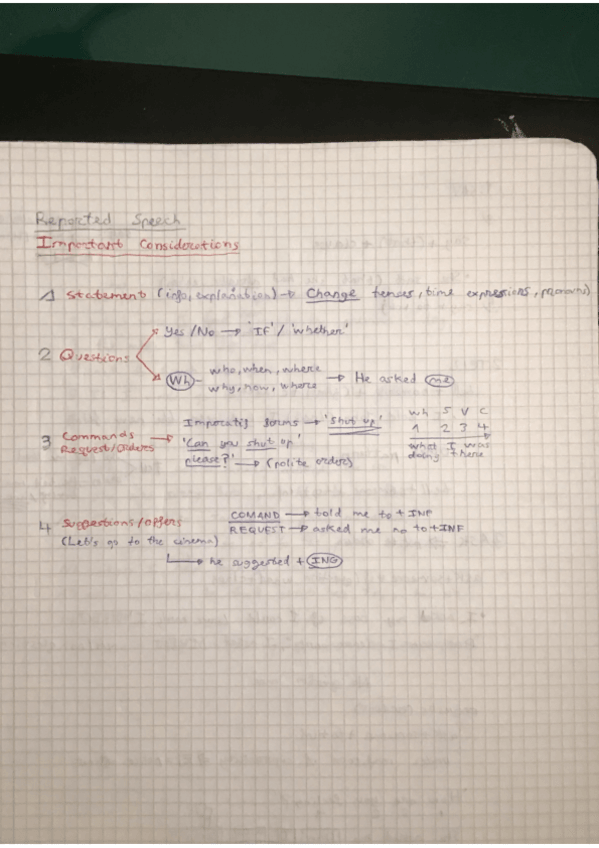 Reported Speech
Important Considerations
1 Statement (info, explanation) → Change tenses, time expressions, pronouns)
Yes/No → 'IF' / 'whether'
2 Questions
Wh - who, when, where
why, how, where → He asked me
Imperatif forms → 'Shut up'
3 Commands
Request/Orders → 'Can you shut up
please?' → (polite orders)
Wh S V C
1 2 3 4
what I was
doing there
4 Suggestions/offers
(Let's go to the cinema)
COMAND → told me to + INF
REQUEST → asked me no to + INF
he suggested + ING